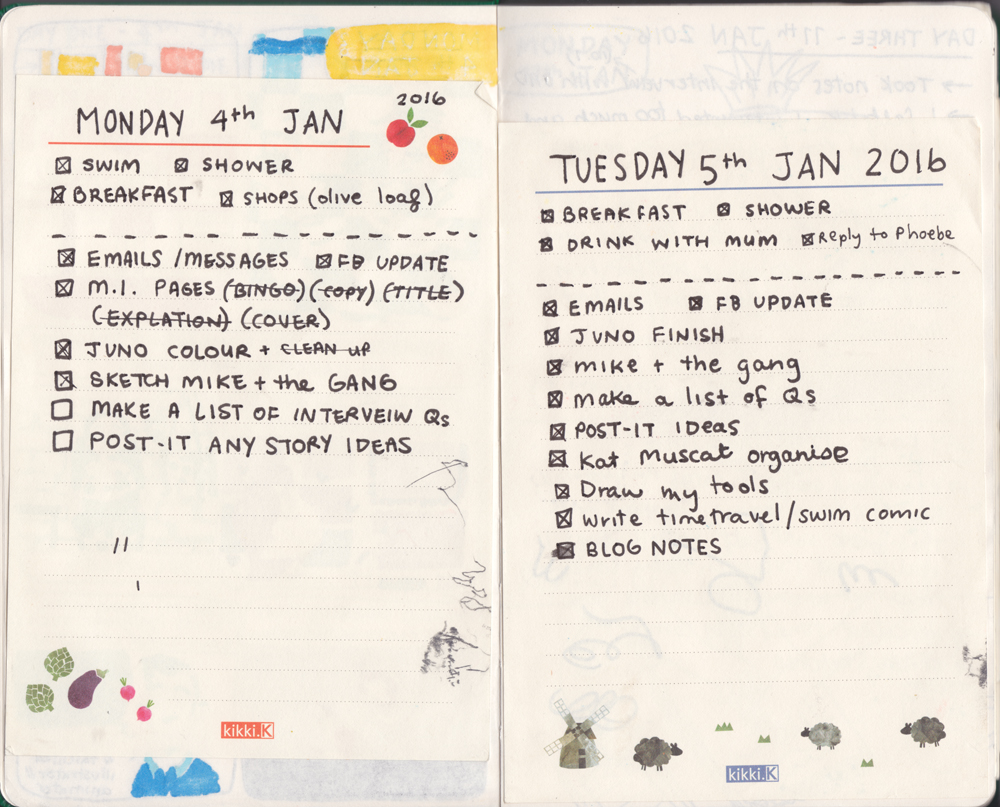 2016
MONDAY 4th JAN
☒ SWIM ☒ SHOWER
☒ BREAKFAST ☒ SHOPS (olive loaf)
☒ EMAILS /MESSAGES ☒ FB UPDATE
☒ M.I. PAGES (BINGO) (COPY) (TITLE)
(EXPLATION) (COVER)
☒ JUNO COLOUR + CLEAN UP
☒ SKETCH MIKE + the GANG
☐ MAKE A LIST OF INTERVEIW Qs
☐ POST-IT ANY STORY IDEAS
kikki.K
TUESDAY 5th JAN 2016
☒ BREAKFAST ☒ SHOWER
☒ DRINK WITH MUM ☒ Reply to Phoebe
☒ EMAILS ☒ FB UPDATE
☒ JUNO FINISH
☒ mike + the gang
☒ make a list of Qs
☒ POST-IT IDeas
☒ Kat Muscat organise
☒ Draw my tools
☒ write timetravel/swim comic
☒ BLOG NOTES
kikki.K